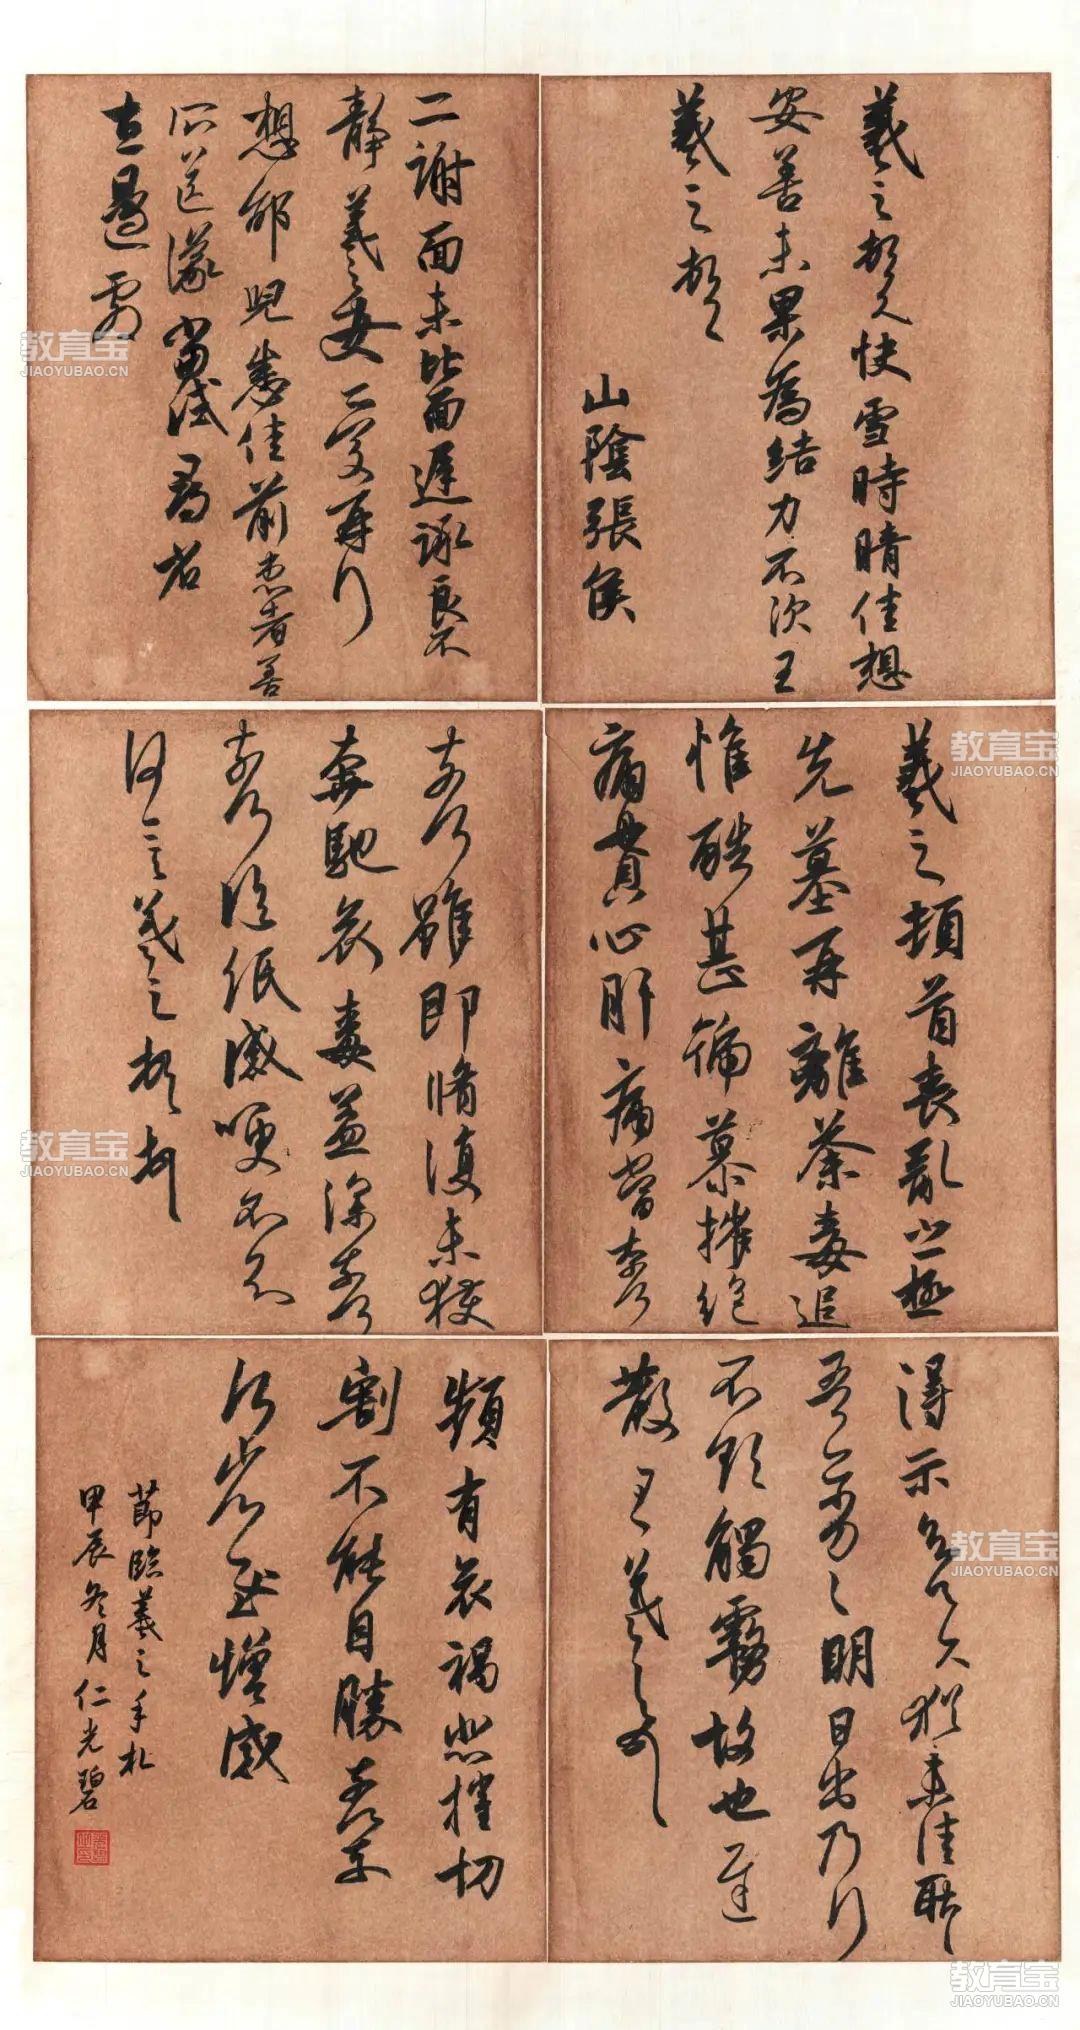 羲之頓首快雪時晴佳想
安善未果為結力不次王
羲之頓首
山陰張侯
二謝面未比面遲詠良不
靜羲之女愛再拜
想邰兒悉佳前患者善
所送議當試尋省
左邊劇
羲之頓首喪亂之極
先墓再離荼毒追
惟酷甚號慕摧絕
痛貫心肝痛當奈何
奈何雖即脩復未獲
奔馳哀毒益深奈何
奈何臨紙感哽不知
何言羲之頓首
得示知足下猶未佳耿
吾亦劣明日出乃行
不欲觸霧故也遲
散王羲之頓首
頻有哀禍悲摧切
割不能自勝奈何奈
何省慰增感
節臨羲之手札
甲辰冬月仁光碧
教育宝
JIAOYUBAO.CN
教育宝
JIAOYUBAO.CN
教育宝
JIAOYUBAO.CN
教育宝
JIAOYUBAO.CN
教育宝
JIAOYUBAO.CN